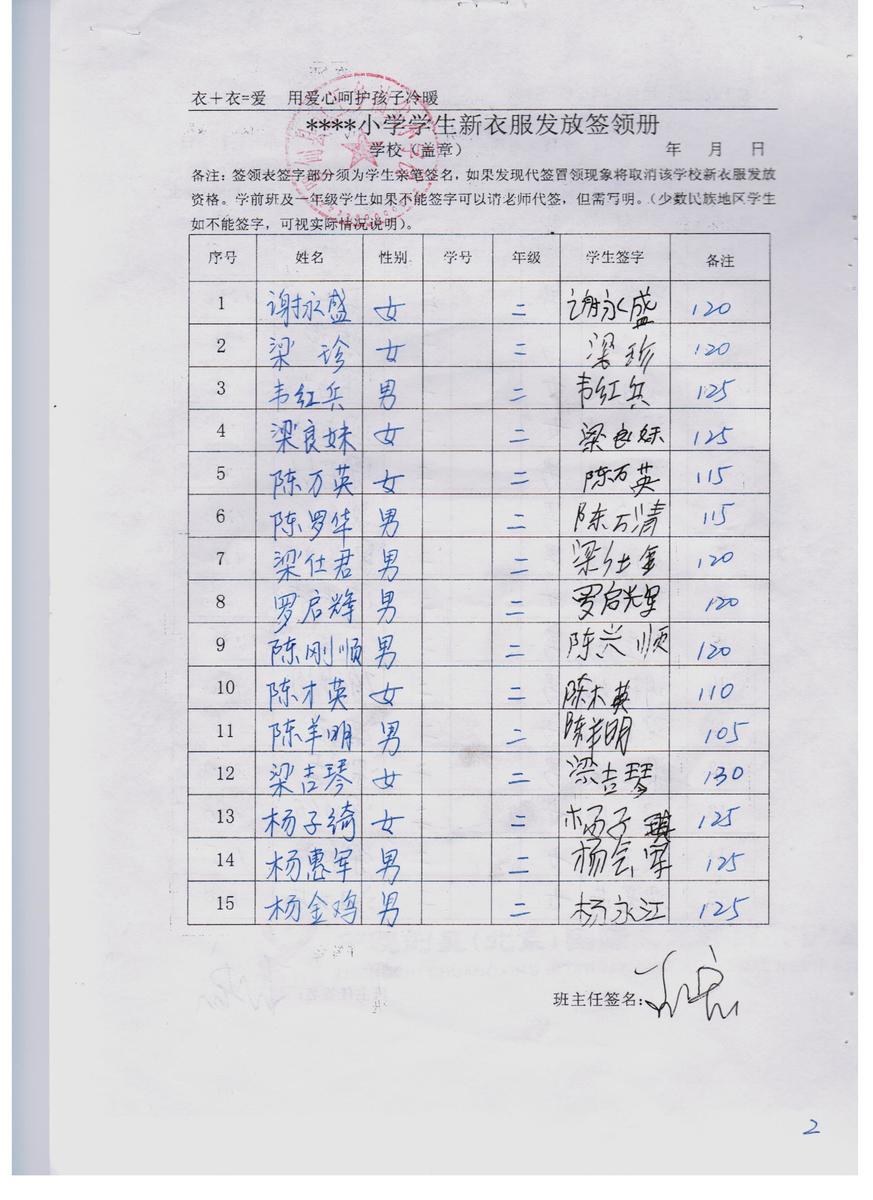 衣＋衣=爱 用爱心呵护孩子冷暖
****小学学生新衣服发放签领册
学校（盖章） 年 月 日
备注：签领表签字部分须为学生亲笔签名，如果发现代签冒领现象将取消该学校新衣服发放
资格。学前班及一年级学生如果不能签字可以请老师代签，但需写明。（少数民族地区学生
如不能签字，可视实际情况说明）。
序号 姓名 性别 学号 年级 学生签字 备注
1 谢永盛 女 二 谢永盛 120
2 梁珍 女 二 梁珍 120
3 韦红兵 男 二 韦红兵 125
4 梁良妹 女 二 梁良妹 125
5 陈万英 女 二 陈万英 115
6 陈罗华 男 二 陈万清 115
7 梁仕君 男 二 梁仕金 120
8 罗启辉 男 二 罗启辉 120
9 陈刚顺 男 二 陈兴顺 120
10 陈才英 女 二 陈木英 110
11 陈羊明 男 二 陈羊明 105
12 梁吉琴 女 二 梁吉琴 130
13 杨子绮 女 二 杨子琪 125
14 杨惠军 男 二 杨会军 125
15 杨金鸡 男 二 杨永江 125
班主任签名：
2